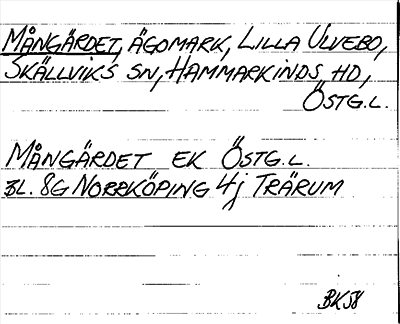 MÅNGÄRDET, ÄGOMARK, LILLA ULVEBO,
SKÄLLVIKS SN, HAMMARKINDS HD,
ÖSTG.L.
MÅNGÄRDET EK ÖSTG.L.
BL. 8G NORRKÖPING 4j TRÄRUM
BK58